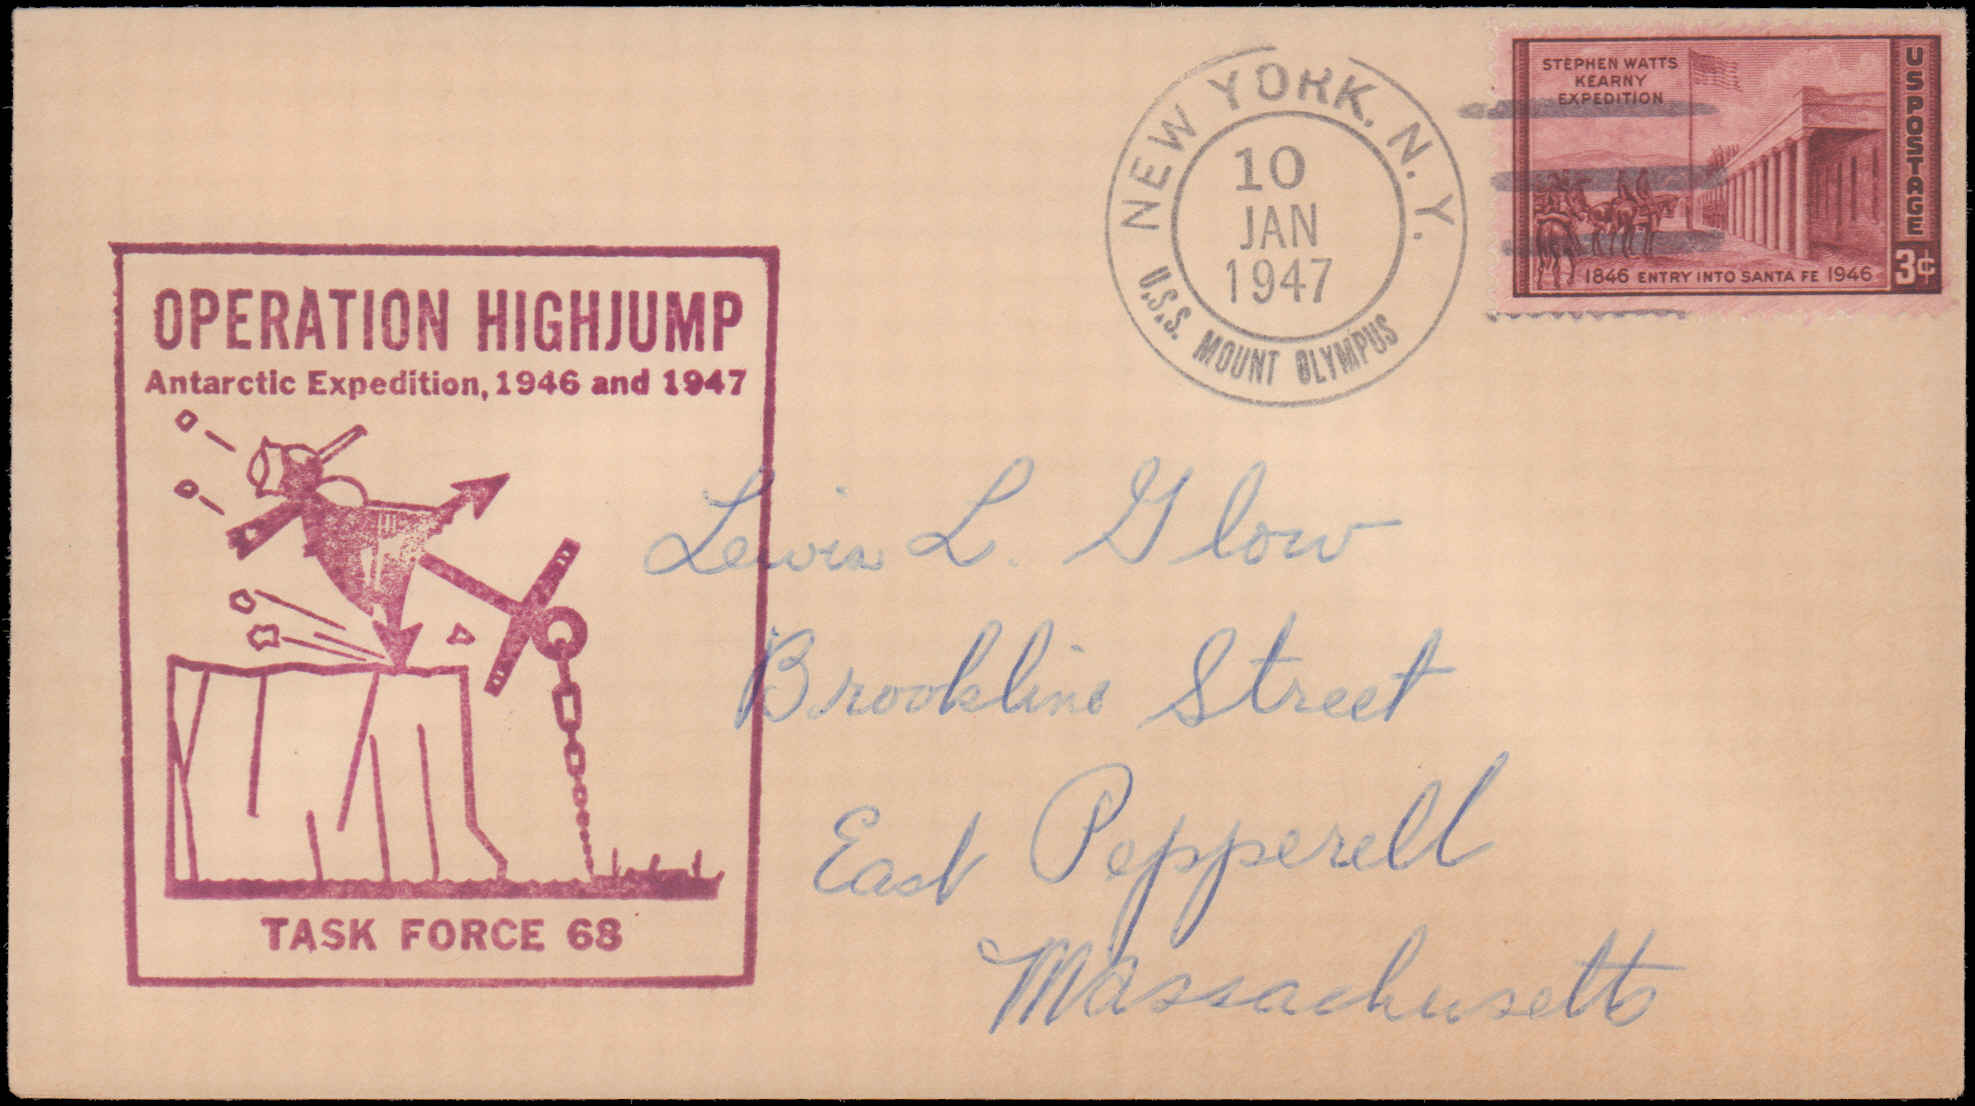 OPERATION HIGHJUMP
Antarctic Expedition, 1946 and 1947
TASK FORCE 68
NEW YORK, N.Y.
10
JAN
1947
U.S.S. MOUNT OLYMPUS
STEPHEN WATTS
KEARNY
EXPEDITION
US POSTAGE
1846 ENTRY INTO SANTA FE 1946
3¢
Lewis L. Glow
Brookline Street
East Pepperell
Massachusetts